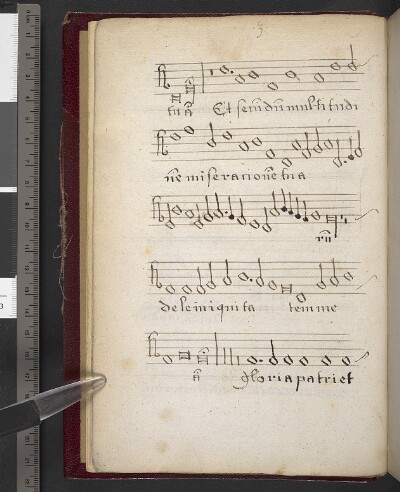 tuā Et secūdū multitudi
nē miserationē tua
rū
dele iniquita tem me
ā gloria patri et